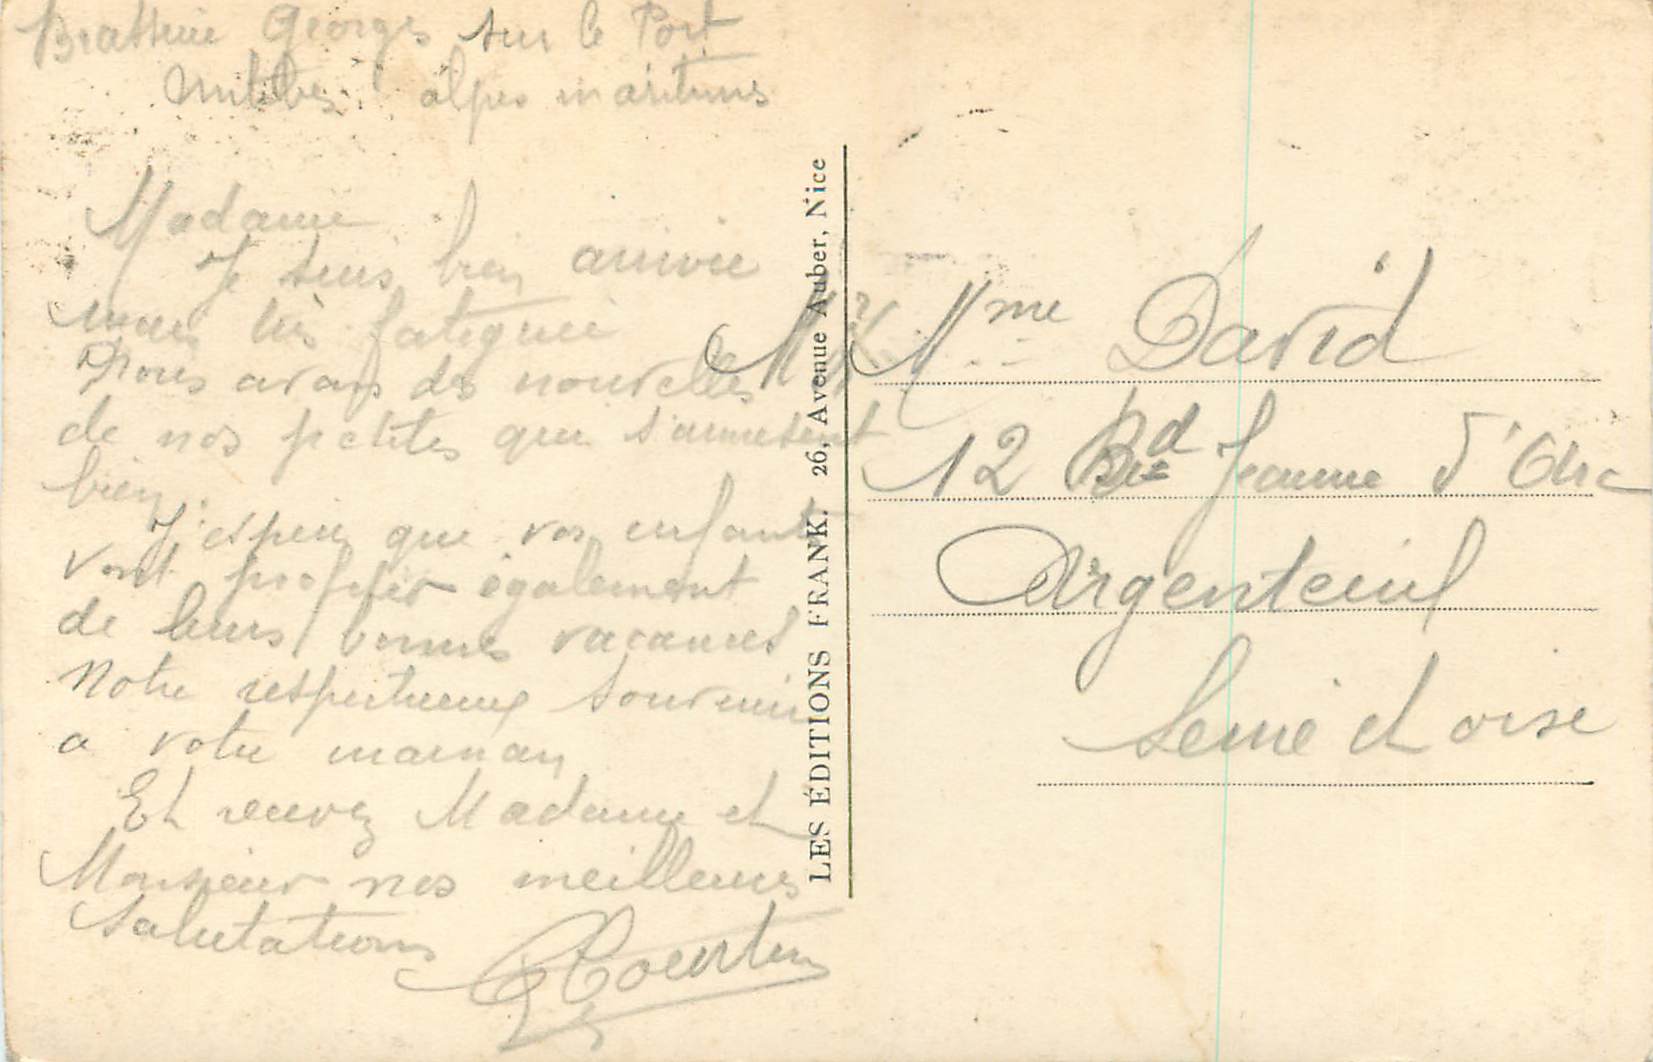 Brasserie Georges sur le Port
Alpes maritimes
Madame
Je suis bien arrivée
mais très fatiguée
Nous avons des nouvelles
de nos petites qui s'amusent
bien.
J'espère que vos enfants
vont profiter également
de leurs bonnes vacances
Notre respectueux souvenir
a votre maman
Et recevez Madame et
Monsieur nos meilleures
salutations
Courtin
LES ÉDITIONS FRANK. 26, Avenue Auber, Nice
M. Mme David
12 Bd Jeanne d'Arc
Argenteuil
Seine et oise